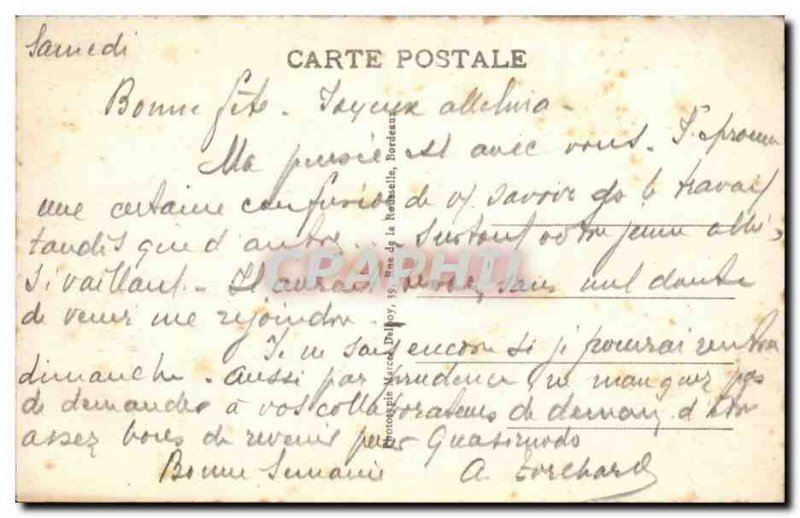 Samedi
CARTE POSTALE
Bonne fête - Joyeux alleluia -
Ma pensée est avec vous. J'éprouve
une certaine confusion de vs savoir ds le travail
tandis que d'autres... Surtout votre jeune abbé,
si vaillant - Il aurait besoin, sans nul doute
de venir me rejoindre -
Je ne sais encore si je pourrai rentrer
dimanche. Aussi par prudence, ne manquez pas
de demander à vos collaborateurs de demain d'être
assez bons de revenir pour Quasimodo
Bonne Semaine A.
Phototypie Marcel Delboy, 39, Rue de la Rousselle, Bordeaux
CPAPHIL